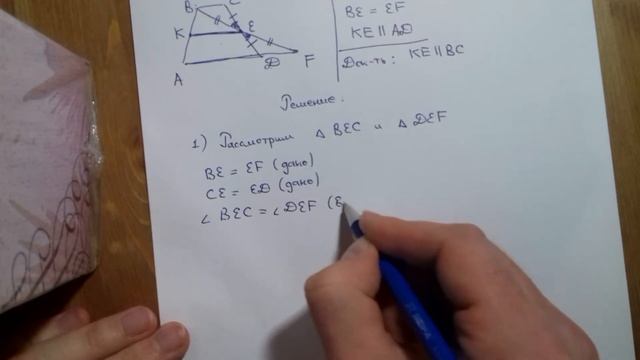 B C
K E
A D F
BE = EF
KE || AD
Док-ть: KE || BC
Решение.
1) Рассмотрим △ BEC и △ DEF
BE = EF (дано)
CE = ED (дано)
∠ BEC = ∠ DEF (